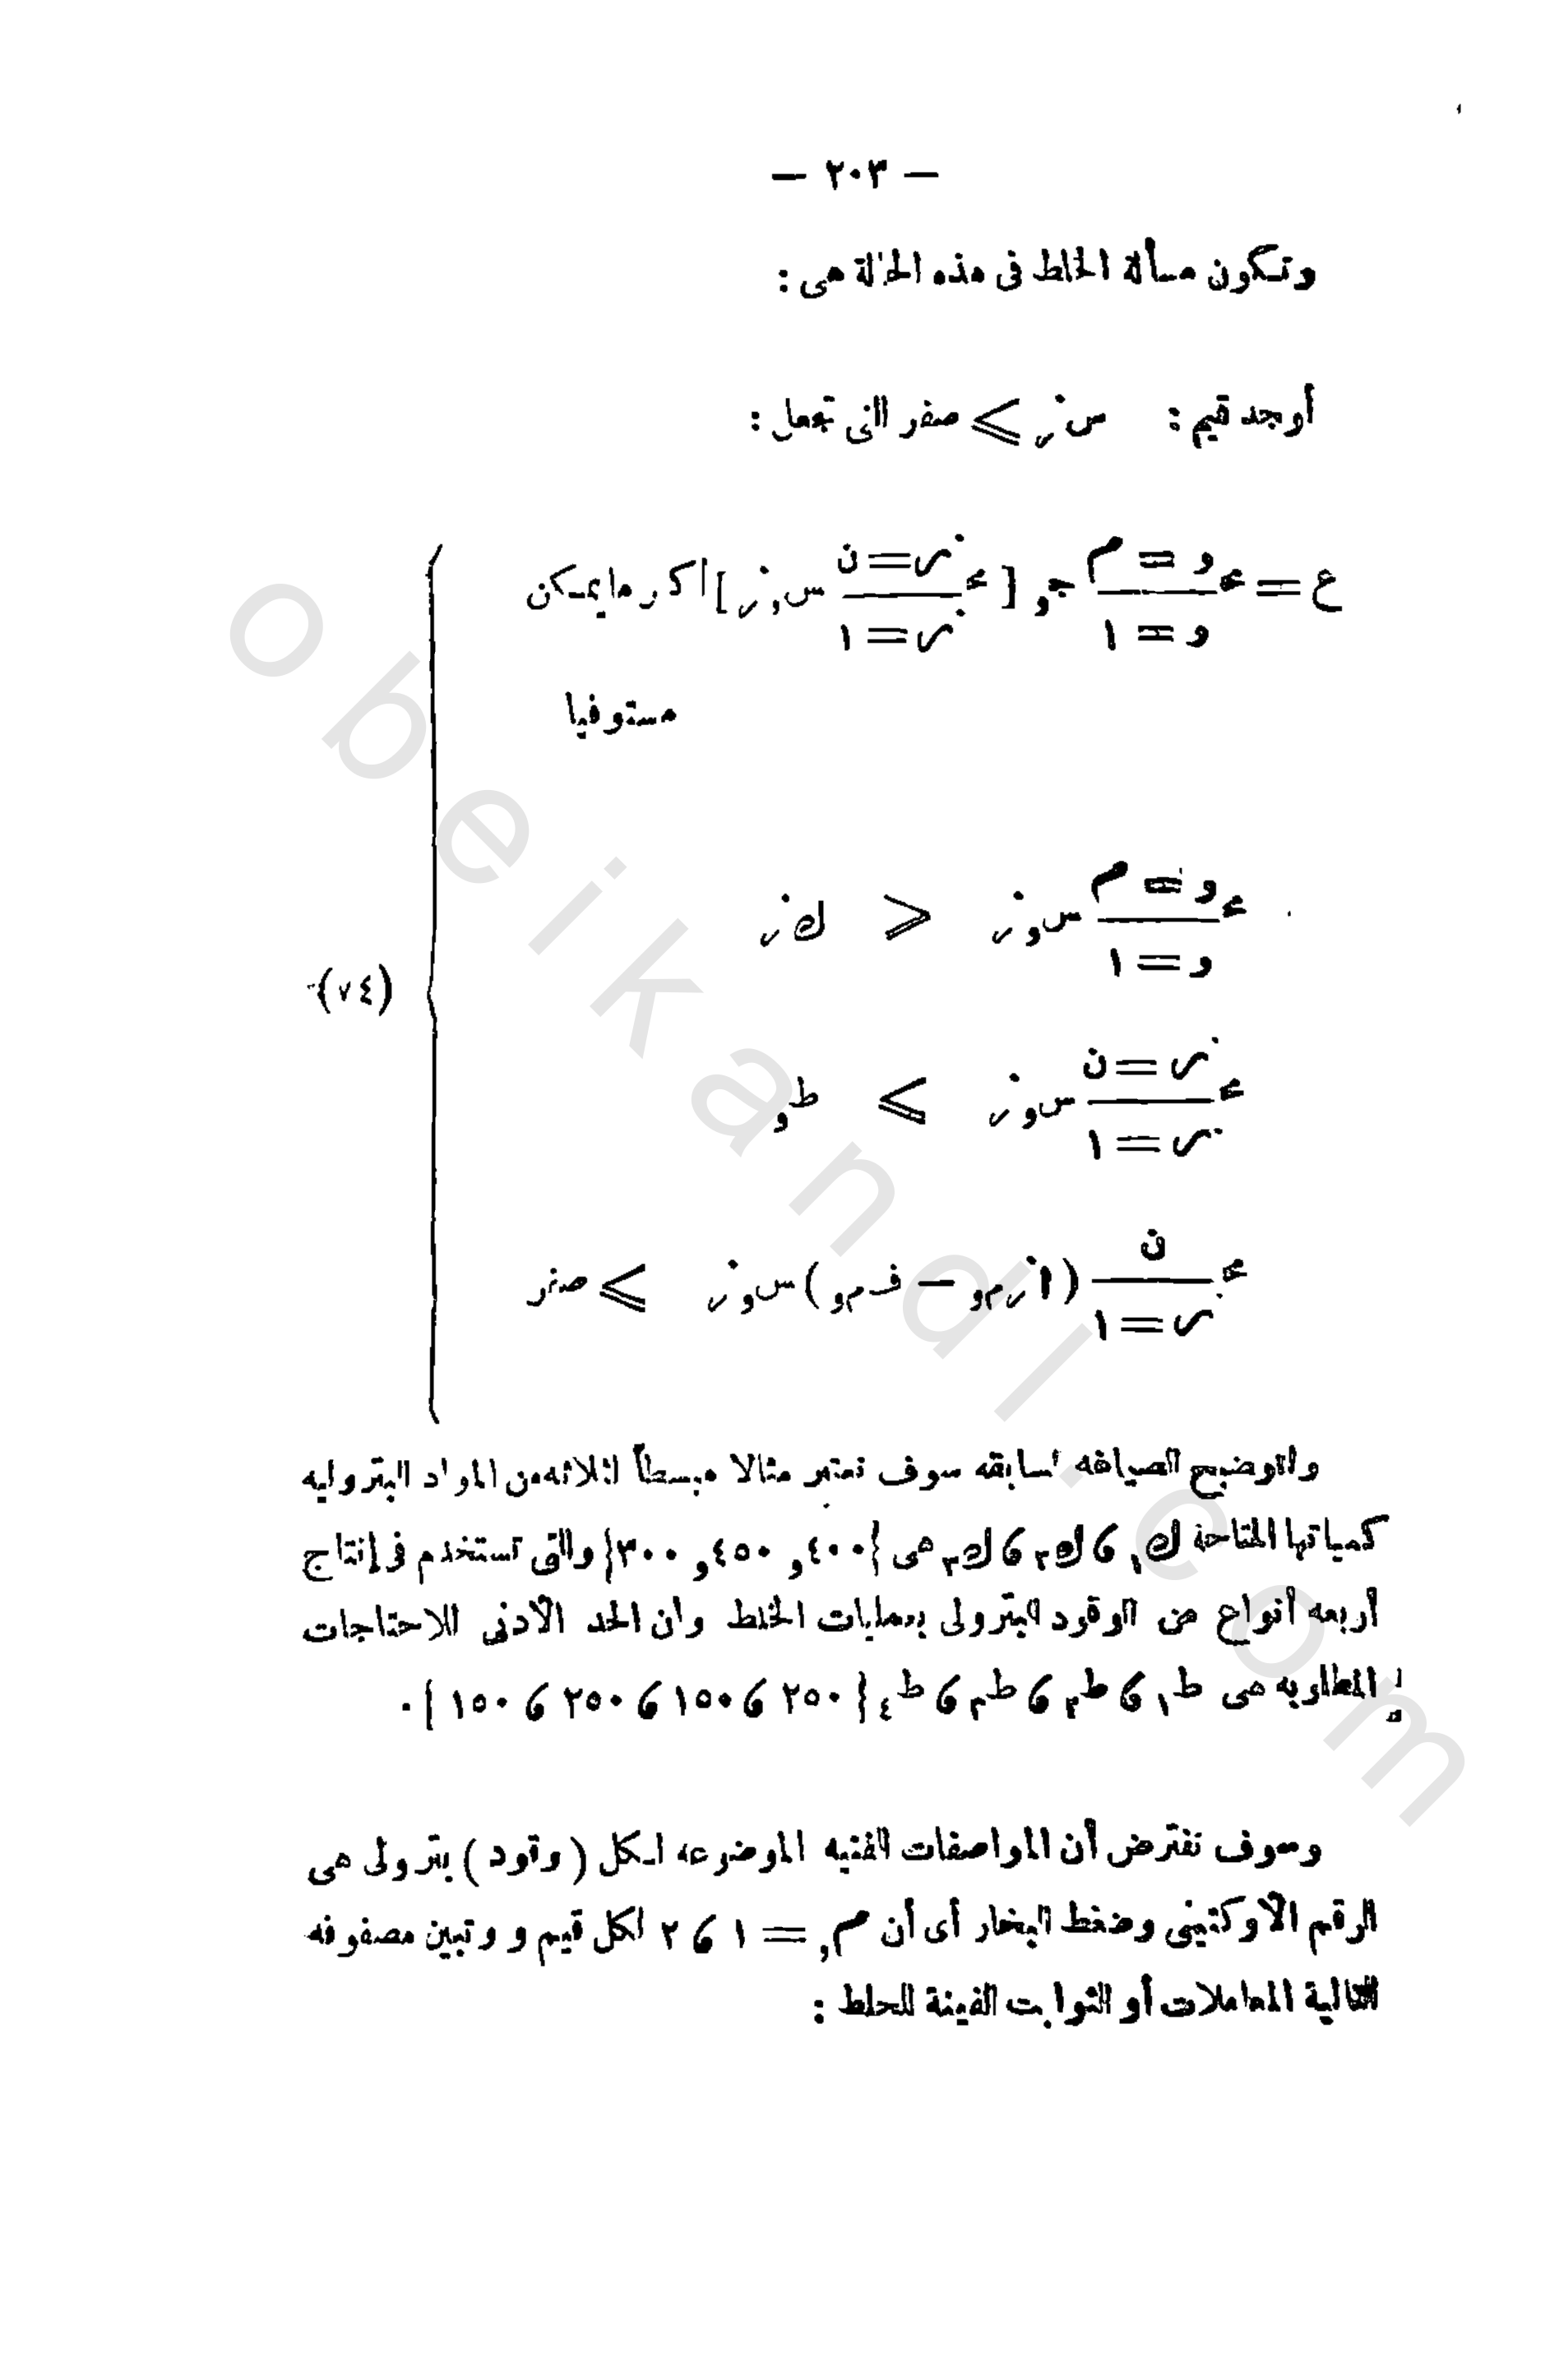 — ٢٠٣ —
وتكون مسألة الخلط فى هذه الحالة هى :
أوجد قيم : س ز ⩾ صفر التى تجعل :
و = م ز = ن
ع = مجـ جو [ مجـ س و ز ] أكبر ما يمكن
و = ١ ز = ١
مستوفيا
و = م
مجـ س و ز ⩽ ك ز
و = ١
(٧٤)
ز = ن
مجـ س و ز ⩾ ط و
ز = ١
ن
مجـ (ا ز م و — ف م و) س و ز ⩾ صفر
ز = ١
ولتوضيح الصياغه السابقه سوف نعتبر مثالا مبسطاً لثلاثه من المواد البتروليه
كمياتها المتاحة ك١ ، ك٢ ، ك٣ هى {٤٠٠ و ٤٥٠ و ٣٠٠} والتى تستخدم فى إنتاج
أربعه أنواع من الوقود البترولى بعمليات الخلط وان الحد الأدنى للاحتاجات
المطلوبه هى ط١ ، ط٢ ، ط٣ ، ط٤ { ٢٥٠ ، ١٥٠ ، ٢٥٠ ، ١٥٠ } .
وسوف نفترض أن المواصفات الفنيه الموضوعه لكل ( وقود ) بترولى هى
الرقم الأوكتينى وضغط البخار أى أن م و = ١ ، ٢ لكل قيم و وتبين مصفوفه
التالية المعاملات أو الثوابت الفينة للخلط :
obeikandl.com